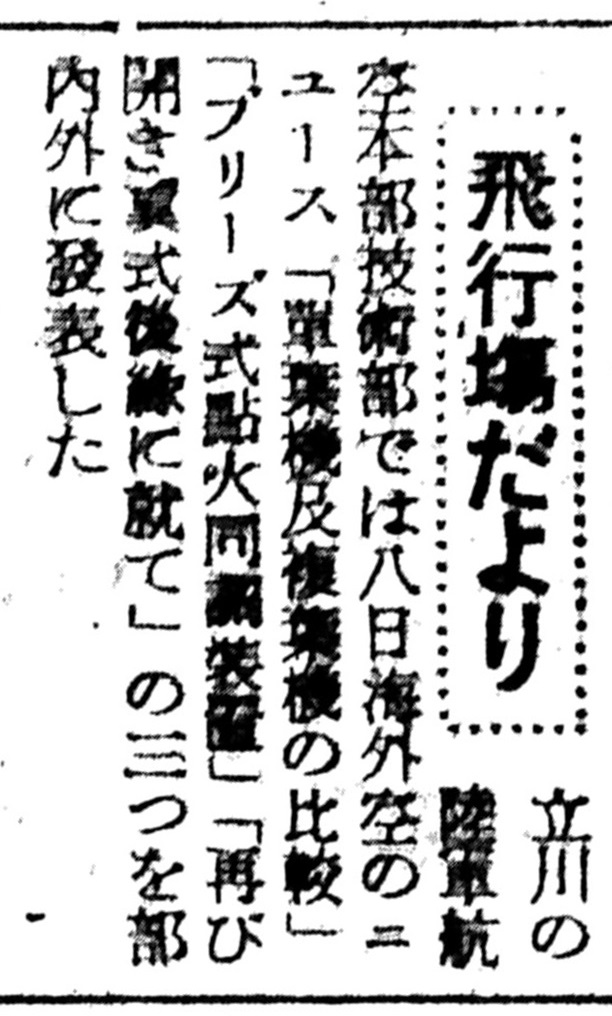 飛行場だより
立川の
陸軍航
空本部技術部では八日海外空のニ
ュース「單葉機及複葉機の比較」
「ブリーズ式點火同調裝置」「再び
開き翼式後緣に就て」の三つを部
内外に發表した